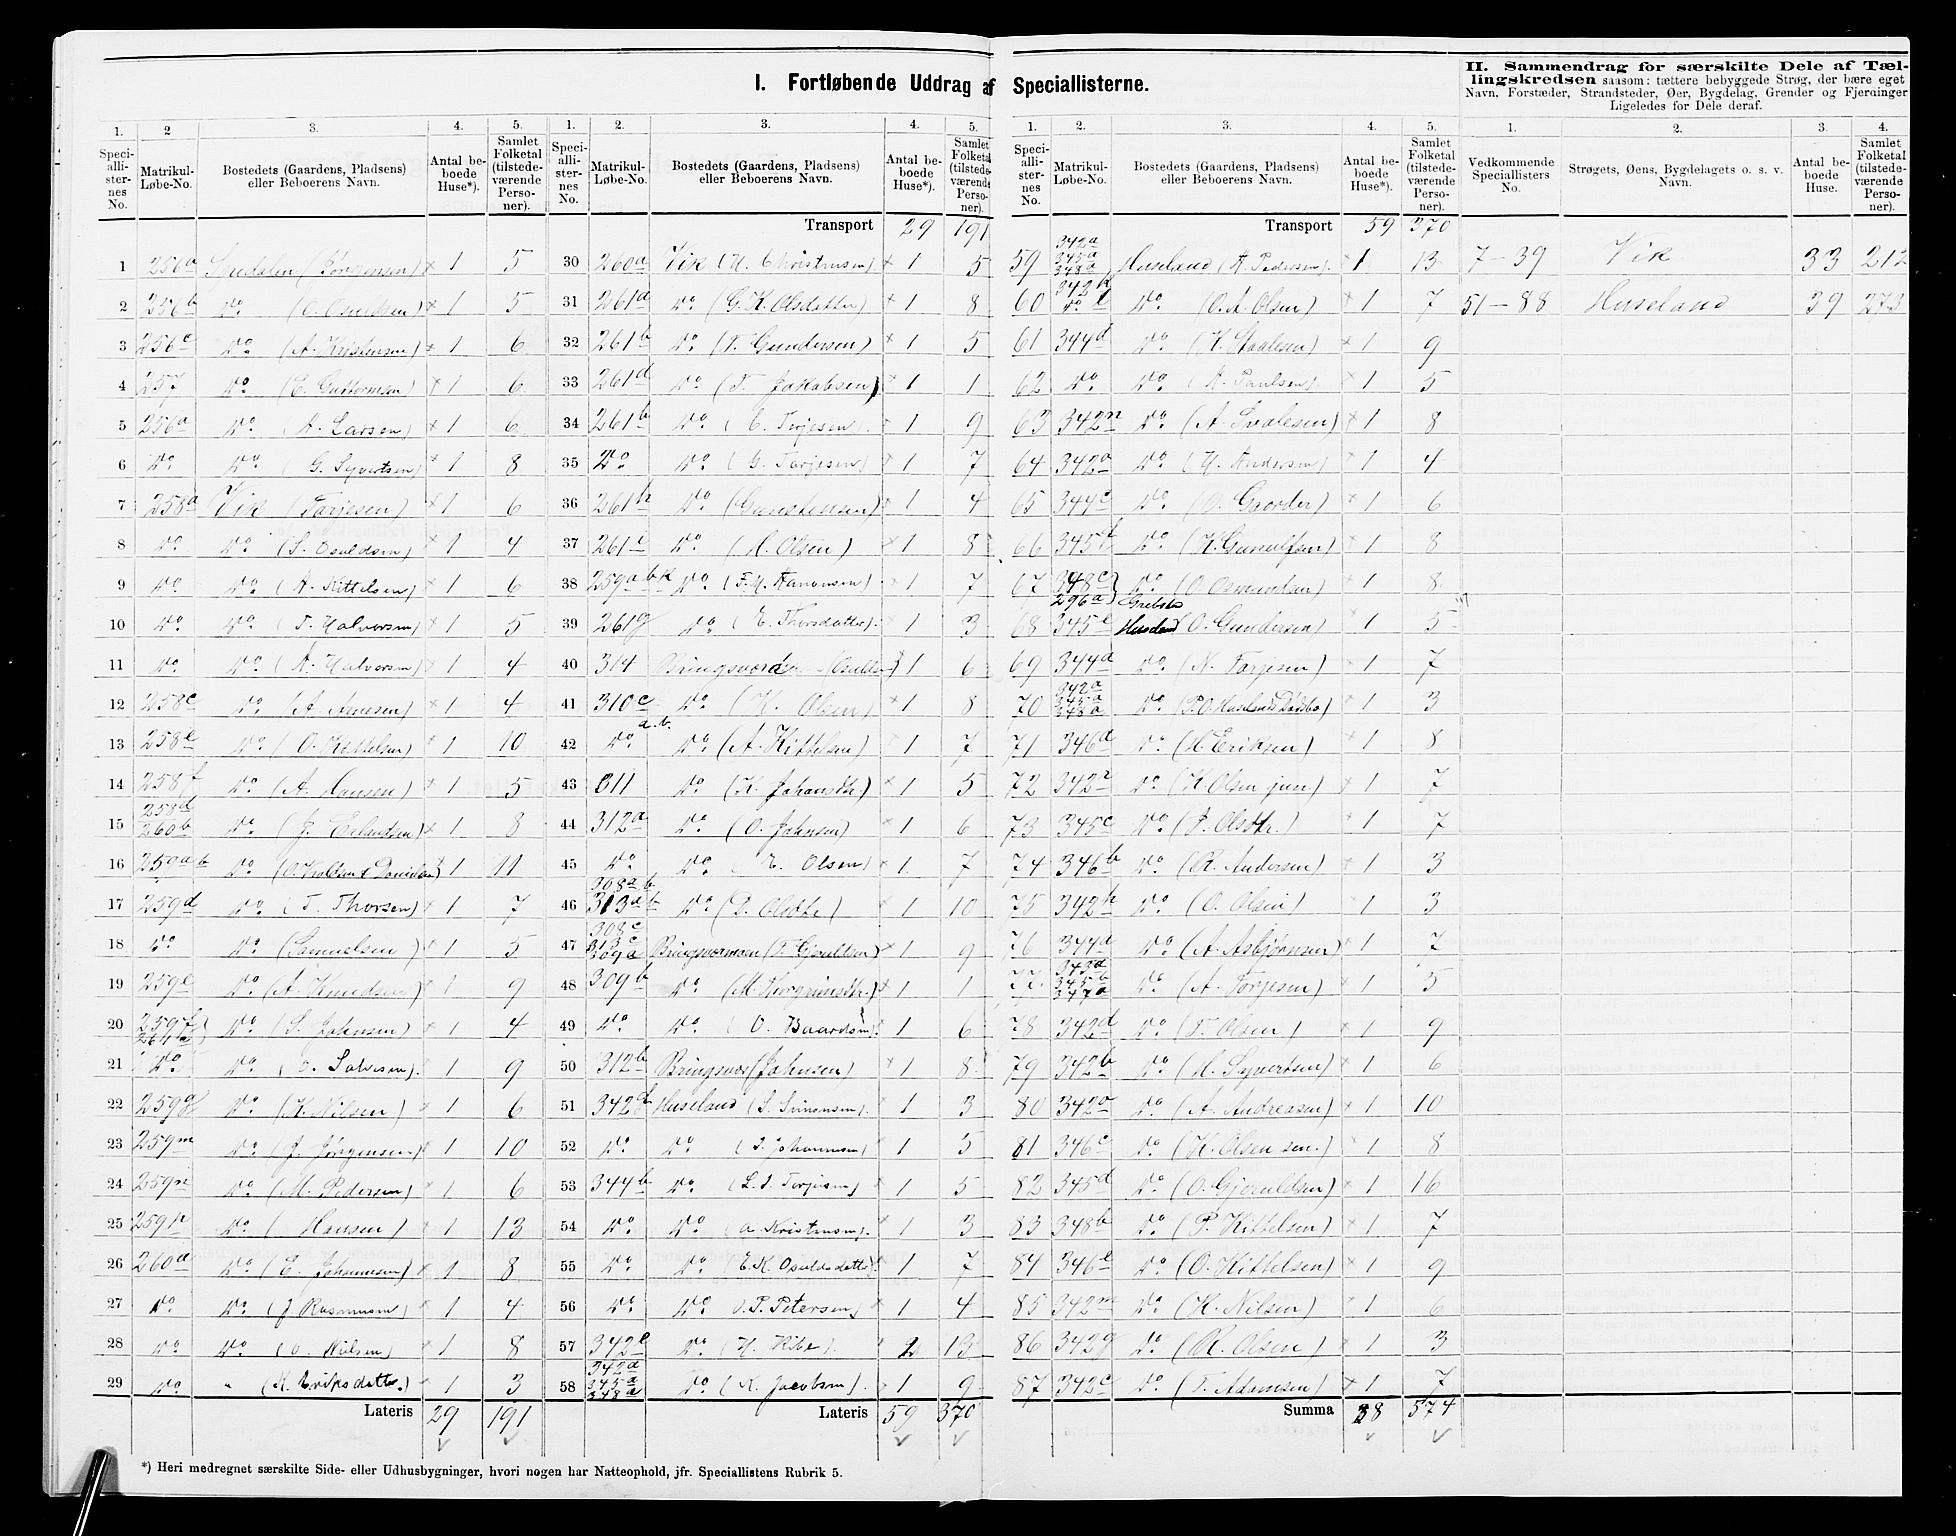 I. Fortløbende Uddrag af Speciallisterne.
II. Sammendrag for særskilte Dele af Tæl-
lingskredsen saasom: tættere bebyggede Strøg, der bære eget
Navn, Forstæder, Strandsteder, Øer, Bygdelag, Grender og Fjerdinger
Ligeledes for Dele deraf.
1. 2 3. 4. 5.
Speci-alli-ster-nes No. Matrikul-Løbe-No. Bostedets (Gaardens, Pladsens) eller Beboerens Navn. Antal be-boede Huse*). Samlet Folketal (tilstede-værende Perso-ner).
1 256a (Jørgensen) × 1 5
2 256b Do (O. Osuldsen) × 1 5
3 256c Do (A. Kristensen) × 1 6
4 257 Do (E. Guttormsen) × 1 6
5 256a Do (A. Larsen) × 1 6
6 Do Do (G. Syvertsen) × 1 8
7 258a Vik (Tarjesen) × 1 6
8 Do Do (S. Osuldsen) × 1 4
9 Do Do (A. Kittelsen) × 1 6
10 Do Do (T. Halvorsen) × 1 5
11 Do Do (A. Halvorsen) × 1 4
12 258c Do (A. Arnesen) × 1 4
13 258e Do (O. Kittelsen) × 1 10
14 258f Do (A. Hansen) × 1 5
15 258d 260b Do (J. Erlandsen) × 1 8
16 259a b Do 1 11
17 259d Do (T. Thorsen) × 1 7
18 Do Do (Samuelsen) × 1 5
19 259e Do (A. Knudsen) × 1 9
20 259f 264a Do (S. Johnsen) × 1 4
21 Do Do (O. Salvesen). 1 9
22 259g Do (K. Nilsen) × 1 6
23 259m Do (J. Jørgensen) × 1 10
24 259n Do (M. Pedersen) × 1 6
25 259p Do (Hansen) × 1 13
26 260a Do (E. Johannesen) × 1 8
27 Do Do (J Rasmussen) × 1 4
28 Do Do (O. Nilsen) × 1 8
29 Do " (K. Eriksdatter.) × 1 3
Lateris 29 191
1. 2. 3. 4. 5.
Speci-alli-ster-nes No. Matrikul-Løbe-No. Bostedets (Gaardens, Pladsens) eller Beboerens Navn. Antal be-boede Huse*). Samlet Folketal (tilstede-værende Perso-ner).
Transport 29 191
30 260a Vik (H. Christensen) × 1 5
31 261a Do (G. K. Olsdatter) × 1 8
32 261b Do (T. Gundersen) × 1 5
33 261d Do (T. Jakobsen) × 1 1
34 261b Do (E. Terjesen). × 1 9
35 Do Do (G. Tarjesen) × 1 7
36 261h Do (Gunstensen) × 1 4
37 261c Do (H. Olsen) × 1 8
38 259a b k Do (T. H. Aanonsen) 1 7
39 261g Do (E. Thorsdatter). 1 3
40 314 × 1 6
41 310c a.b. Do (K. Olsen) × 1 8
42 Do Do (A. Kittelsen) × 1 7
43 311 Do (K. Johansdtr.) × 1 5
44 312a Do (O. Johnsen) × 1 6
45 Do Do (E. Olsen) × 1 7
46 308a b 313a b Do (D. Olsdtr) × 1 10
47 308c 313c 309a (T. Gjeruldsen) × 1 9
48 309b Do × 1 1
49 Do Do (O. Baardsen). × 1 6
50 312b Bringsvor (Johnsen) × 1 8
51 342f Huseland (S. Simonsen). × 1 3
52 Do Do (S. Johannesen) × 1 5
53 344b Do (L. T. Terjesen) × 1 5
54 Do Do (A. Kristensen). × 1 3
55 Do Do (E. K. Osuldsdatter). 1 7
56 Do Do (O. P. Petersen) × 1 4
57 342e Do (H. Ribe). 2 13
58 342a 345a 348a Do (K. Jacobsen). × 1 9
Lateris 59 370
1. 2. 3. 4. 5.
Speci-alli-ster-nes No. Matrikul-Løbe-No. Bostedets (Gaardens, Pladsens) eller Beboerens Navn. Antal be-boede Huse*). Samlet Folketal (tilstede-værende Perso-ner).
Transport 59 370
59 342a 345a 348a Huseland (A. Pedersen). × 1 13
60 342k Do l Do (O. A. Olsen) × 1 7
61 344d Do (K. Staalesen) × 1 9
62 Do Do (A. Paulsen) × 1 5
63 342n Do × 1 8
64 342a Do (H. Andersen) × 1 4
65 344c Do (O. Gaarder) × 1 6
66 345f Do (K. Gunulfsen) × 1 8
67 348c 296a Do (O. Osmundsen) × 1 8
Grebstad
68 345e Huseland (O. Gundersen) × 1 5
69 344a Do (N. Tarjesen) × 1 7
70 342a 345a 348a Do × 1 3
71 346d Do (H. Eriksen) × 1 8
72 342i Do (K Olsen jun.) × 1 7
73 345c Do (J. Olsdtr.) × 1 7
74 346b Do (R. Andersen) × 1 3
75 342h Do (O. Olsen) × 1 3
76 344a Do (A. Asbjørnsen) × 1 7
77. 343d 345b 347a Do (A. Terjesen) × 1 5
78 342d Do (T. Olsen) × 1 9
79 342b Do (H. Syvertsen) × 1 6
80 342o Do (A. Andreasen) × 1 10
81 346c Do (K. Olsen sen.) × 1 8
82 345d Do (O. Gjeruldsen) × 1 16
83 348b Do (P. Kittelsen) × 1 7
84 346e Do (O. Kittelsen) × 1 9
85 342m Do (K. Nilsen) × 1 6
86 342g Do (R. Olsen) × 1 3
87 342c Do (T. Adamsen) × 1 7
Summa 88 574
1. 2. 3. 4.
Vedkommende Speciallisters No. Strøgets, Øens, Bygdelagets o. s. v. Navn. Antal be-boede Huse. Samlet Folketal (tilstede-værende Perso-ner).
7-39 Vik 33 212
51-88 Huseland 39 273
*) Heri medregnet særskilte Side- eller Udhusbygninger, hvori nogen har Natteophold, jfr. Speciallistens Rubrik 5.